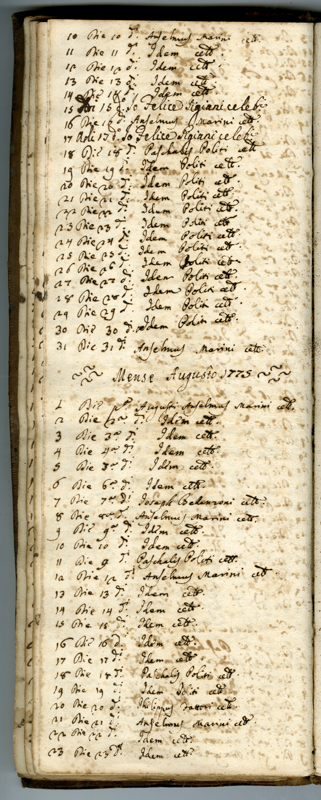 10 Die 10 d.ᵃ Anselmus Marini cetᵗ.
11 Die 11 d.ᵃ Idem cetᵗ.
12 Die 12 d.ᵃ Idem cetᵗ.
13 Die 13 d.ᵃ Idem cetᵗ.
14 Die 14 d.ᵃ Idem cetᵗ.
15 15 Io Felice Sigiani celebᵢ
16 Die 16 d.ᵃ Anselmus Marini cetᵗ.
17 Adi 17 d.º Io Felice Sigiani celebᵢ
18 Die 18 d.ᵃ Paschalis Politi cetᵗ.
19 Die 19 d.ᵃ Idem Politi cetᵗ.
20 Die 20 d.ᵃ Idem Politi cetᵗ.
21 Die 21 d.ᵃ Idem Politi cetᵗ.
22 Die 22 d.ᵃ Idem Politi cetᵗ.
23 Die 23 d.ᵃ Idem Politi cetᵗ.
24 Die 24 d.ᵃ Idem Politi cetᵗ.
25 Die 25 d.ᵃ Idem Politi cetᵗ.
26 Die 26 d.ᵃ Idem Politi cetᵗ.
27 Die 27 d.ᵃ Idem Politi cetᵗ.
28 Die 28 d.ᵃ Idem Politi cetᵗ.
29 Die 29 d.ᵃ Idem Politi cetᵗ.
30 Die 30 d.ᵃ Idem Politi cetᵗ.
31 Die 31 d.ᵃ Anselmus Marini cetᵗ.
Mense Augusto 1775
1 Die pᵃ Augusti Anselmus Marini cetᵗ.
2 Die 2ᵃ d.ᵃ Idem cetᵗ.
3 Die 3ᵃ d.ᵃ Idem cetᵗ.
4 Die 4ᵃ d.ᵃ Idem cetᵗ.
5 Die 5ᵃ d.ᵃ Idem cetᵗ.
6 Die 6ᵃ d.ᵃ Idem cetᵗ.
7 Die 7ᵃ d.ᵃ Joseph cetᵗ.
8 Die 8ᵃ d.ᵃ Anselmus Marini cetᵗ.
9 Die 9ᵃ d.ᵃ Idem cetᵗ.
10 Die 10 d.ᵃ Idem cetᵗ.
11 Die 9 d.ᵃ Paschalis Politi cetᵗ.
12 Die 12 d.ᵃ Anselmus Marini cetᵗ.
13 Die 13 d.ᵃ Idem cetᵗ.
14 Die 14 d.ᵃ Idem cetᵗ.
15 Die 15 d.ᵃ Idem cetᵗ.
16 Die 16 d.ᵃ Idem cetᵗ.
17 Die 17 d.ᵃ Idem cetᵗ.
18 Die 18 d.ᵃ Paschalis Politi cetᵗ.
19 Die 19 d.ᵃ Idem Politi cetᵗ.
20 Die 20 d.ᵃ Philippus cetᵗ.
21 Die 21 d.ᵃ Anselmus Marini cetᵗ.
22 Die 22 d.ᵃ Idem cetᵗ.
23 Die 23 d.ᵃ Idem cetᵗ.